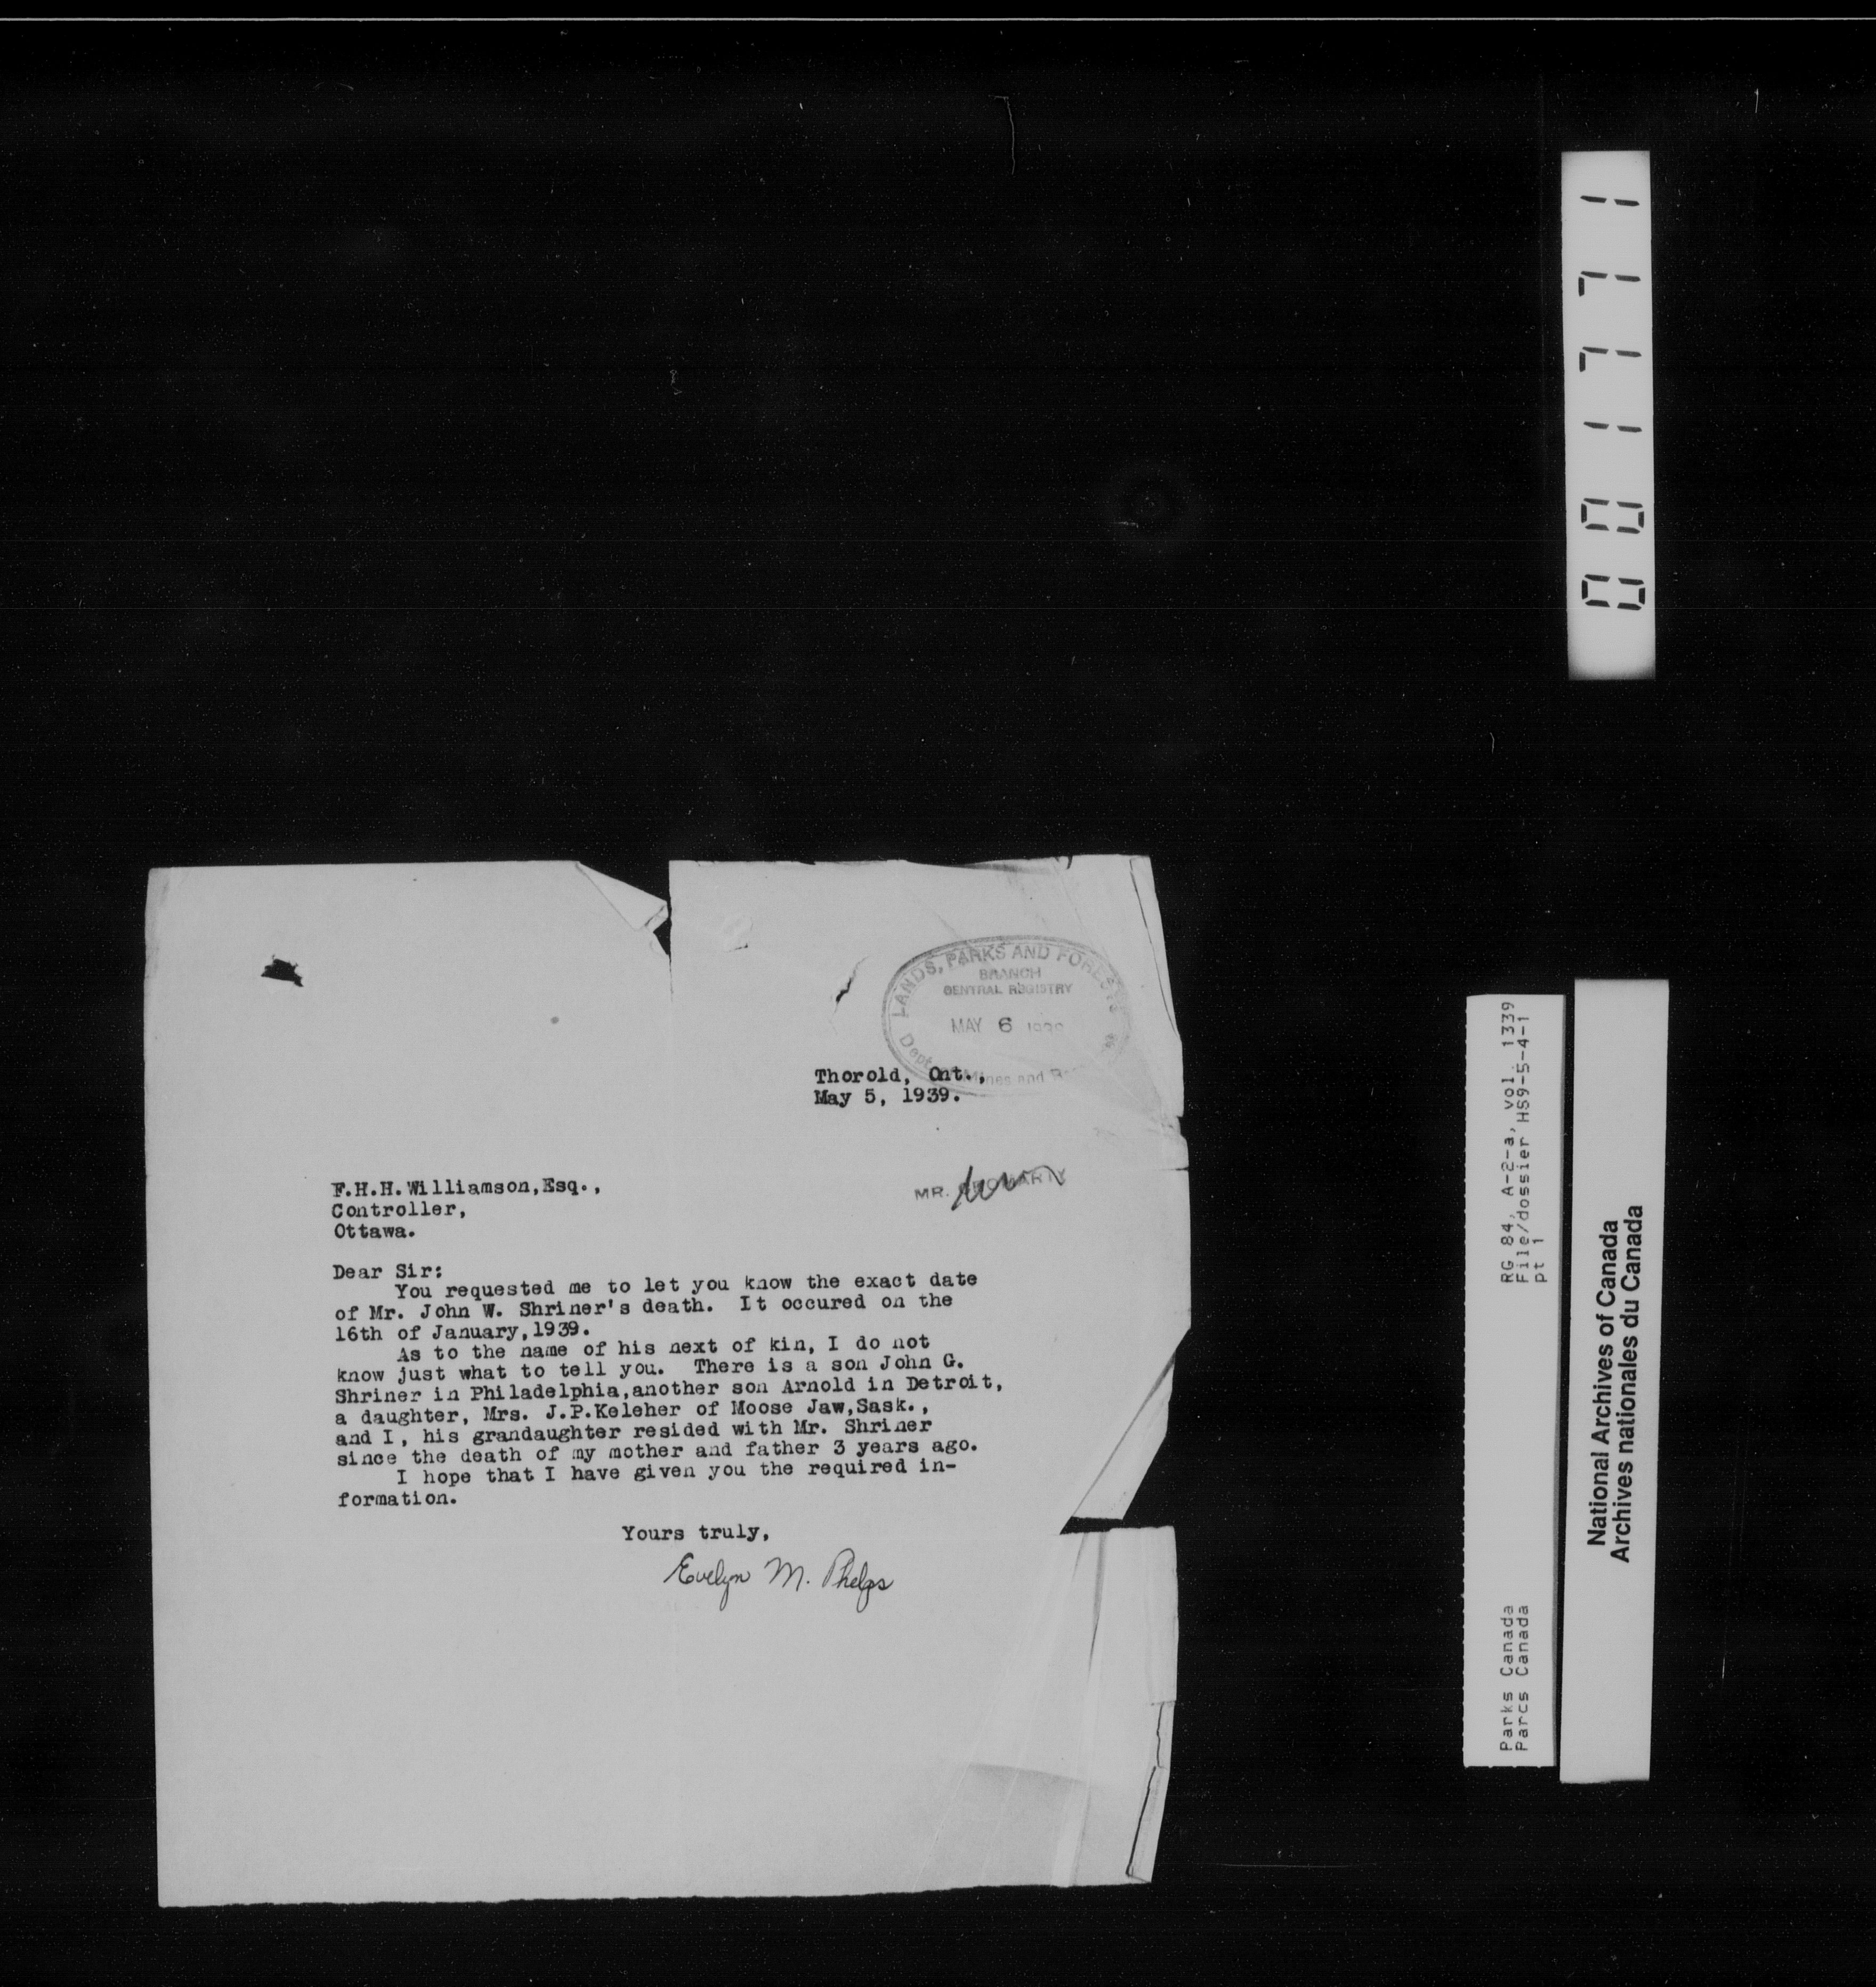 LANDS, PARKS AND FORESTS
BRANCH
CENTRAL REGISTRY
MAY 6 1939
Dept. Mines and
Thorold, Ont.,
May 5, 1939.
F.H.H.Williamson,Esq.,
Controller,
Ottawa.
MR.
Dear Sir:
You requested me to let you know the exact date
of Mr. John W. Shriner's death. It occured on the
16th of January,1939.
As to the name of his next of kin, I do not
know just what to tell you. There is a son John G.
Shriner in Philadelphia,another son Arnold in Detroit,
a daughter, Mrs. J.P.Keleher of Moose Jaw,Sask.,
and I, his grandaughter resided with Mr. Shriner
since the death of my mother and father 3 years ago.
I hope that I have given you the required in-
formation.
Yours truly,
Evelyn M. Phelps
001771
RG 84, A-2-a, vol. 1339
File/dossier HS9-5-4-1
pt 1
Parks Canada
Parcs Canada
National Archives of Canada
Archives nationales du Canada